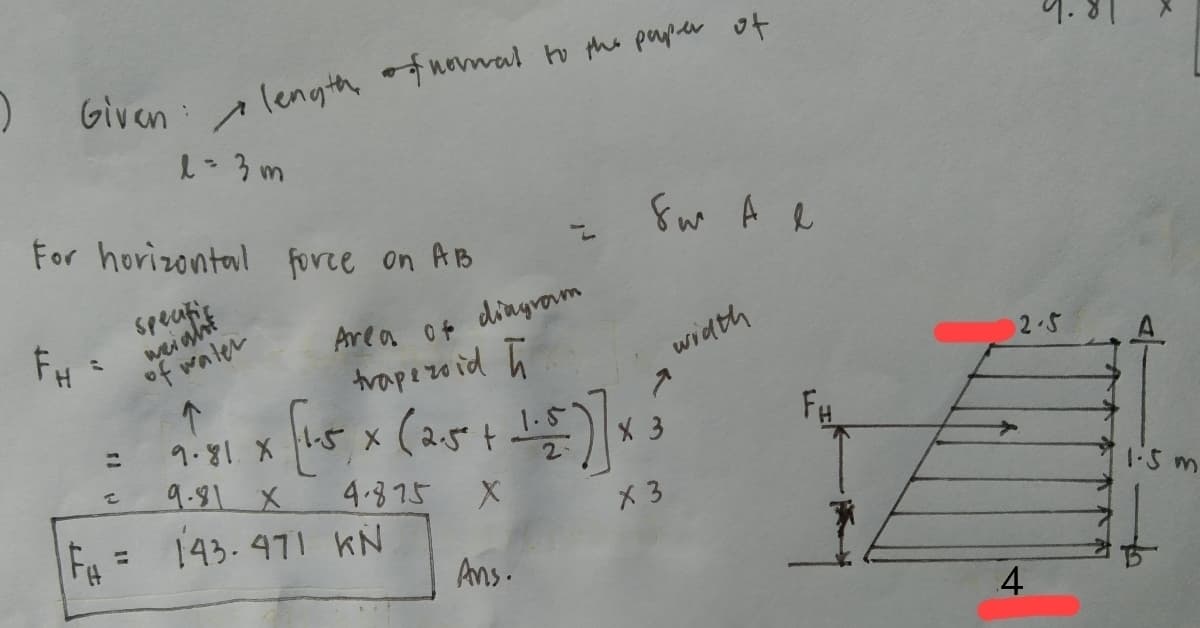 9.81 x
) Given : → length of normal to the paper of
l = 3 m
For horizontal force on AB = γw A l
FH = specific weight of water Area of diagram trapezoid h̄ width
= 9.81 x [1.5 x (2.5 + 1.5/2)] x 3
= 9.81 x 4.875 x x 3
FH = 143.471 KN Ans.
2.5 A
FH
1.5 m
B
4